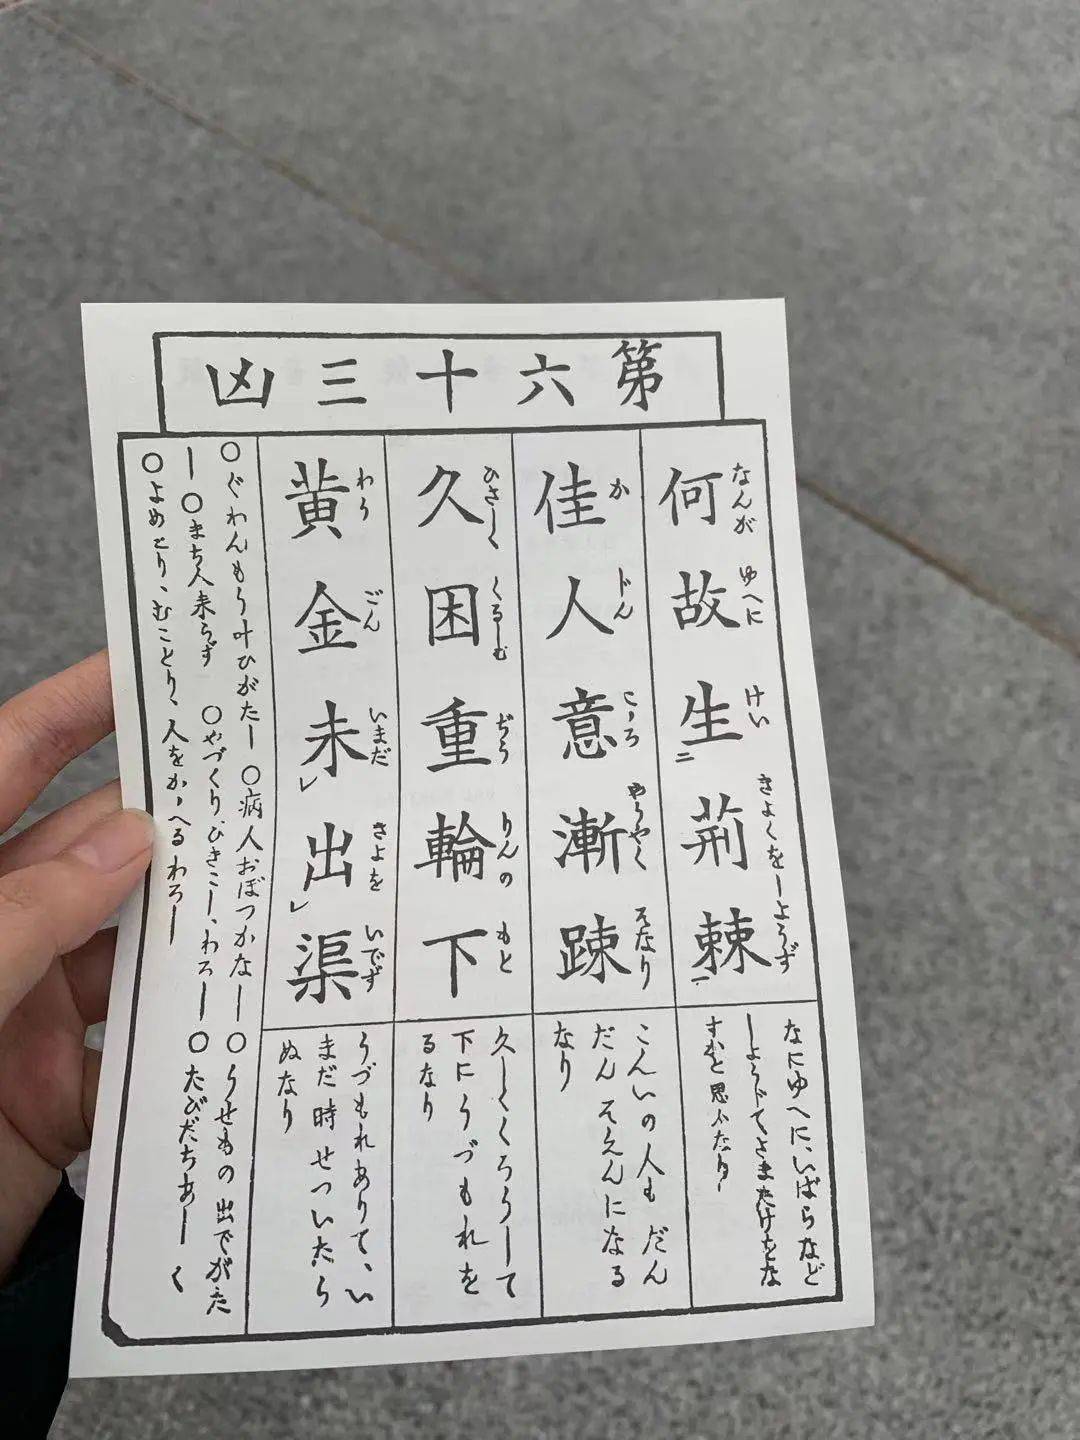 第六十三凶
何故生二荊棘一
なんが ゆへに けい きよくをしようず
佳人意漸踈
か じん こゝろ やうやく そなり
久困重輪下
ひさしく くるしむ ぢう りんの もと
黄金未レ出レ渠
わう ごん いまだ きよを いでず
なにゆへに、いばらなど
しようドてさまたけをな
すかと思ふたり
こんいの人も だん
だん そえんになる
なり
久しくくろうして
下にうづもれを
るなり
うづもれありて、い
まだ時せついたら
ぬなり
○ぐわんもう叶ひがたし ○病人おぼつかなし ○うせもの出でがた
し ○まち人来らず ○やづくり、ひきこし、わろし ○たびだちあしく
○よめとり、むことり、人をかゝへるわろし